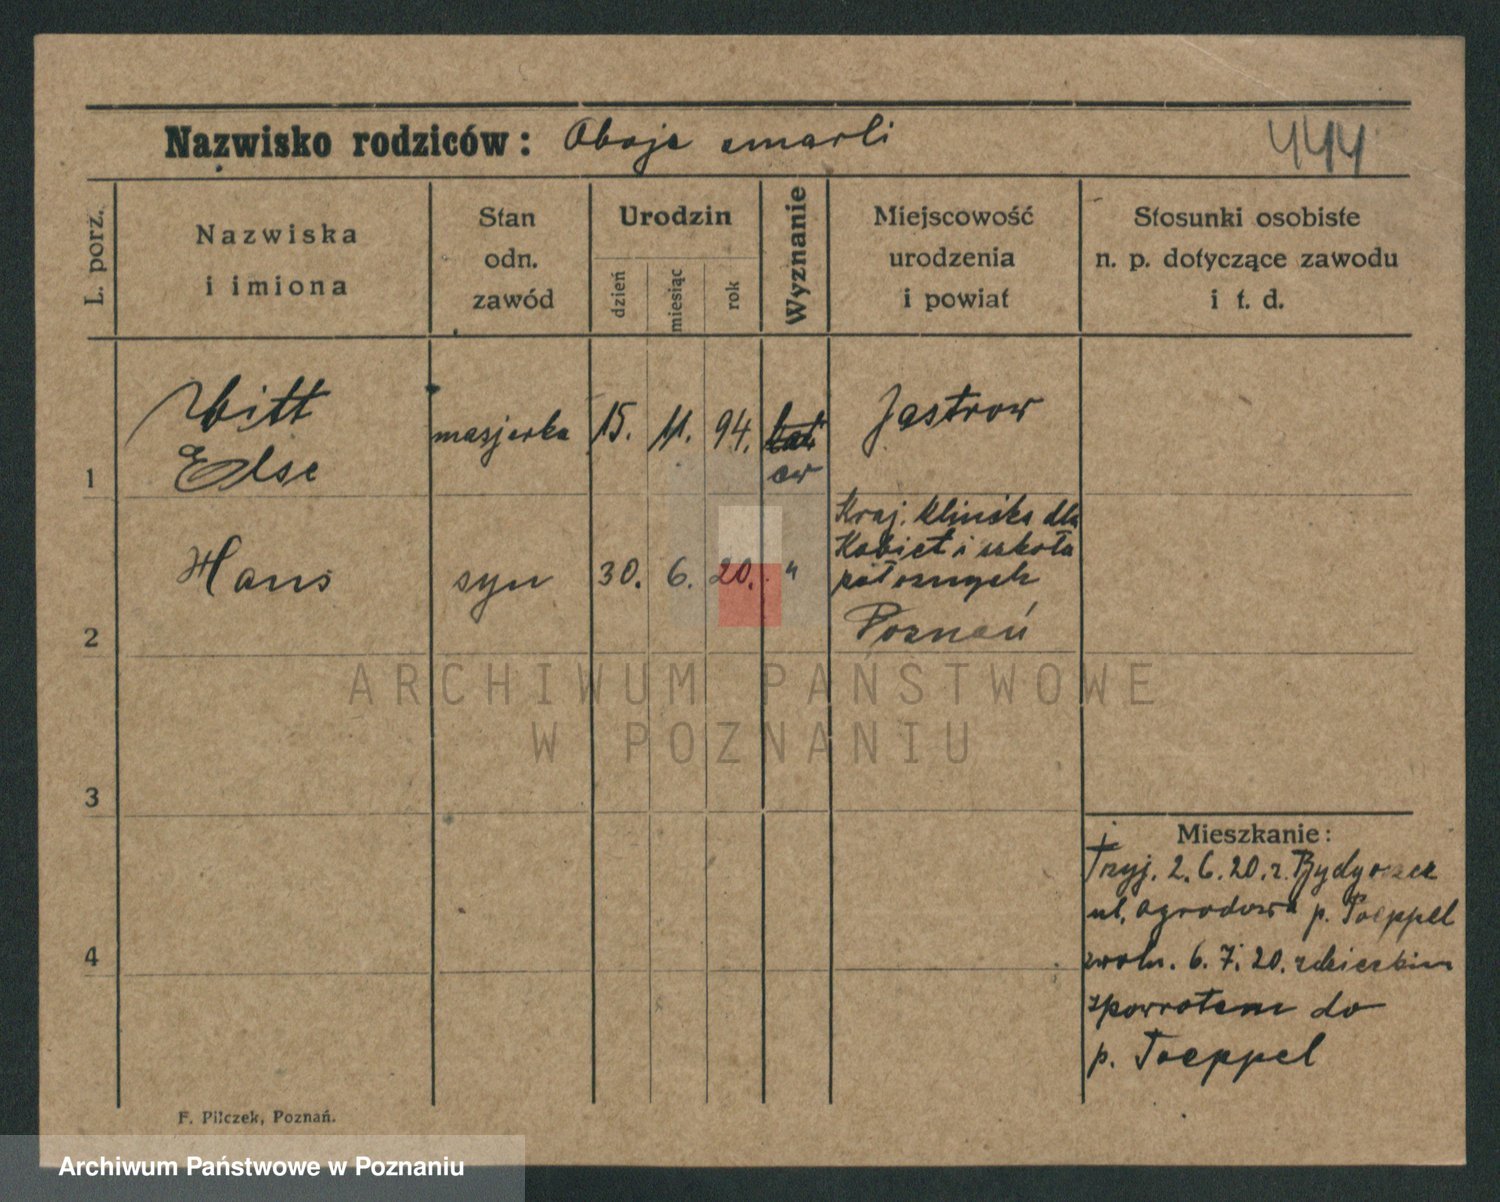 Nazwisko rodziców: Oboje zmarli
444
L. porz.
Nazwiska
i imiona
Stan
odn.
zawód
Urodzin
dzień
miesiąc
rok
Wyznanie
Miejscowość
urodzenia
i powiat
Stosunki osobiste
n. p. dotyczące zawodu
i t. d.
1
Witt
Else
masjerka
15.
11.
94.
kat
ew
Jastrow
2
Hans
syn
30.
6.
20.
"
Kraj. Klinika dla
Kobiet i szkoła
położnych
Poznań
3
4
Mieszkanie:
Przyj. 2.6.20. z Bydgoszcz
ul. Ogrodowa p. Toeppel
zwoln. 6.7.20. z dzieckiem
zpowrotem do
p. Toeppel
F. Pilczek, Poznań.
ARCHIWUM PAŃSTWOWE
W POZNANIU
Archiwum Państwowe w Poznaniu